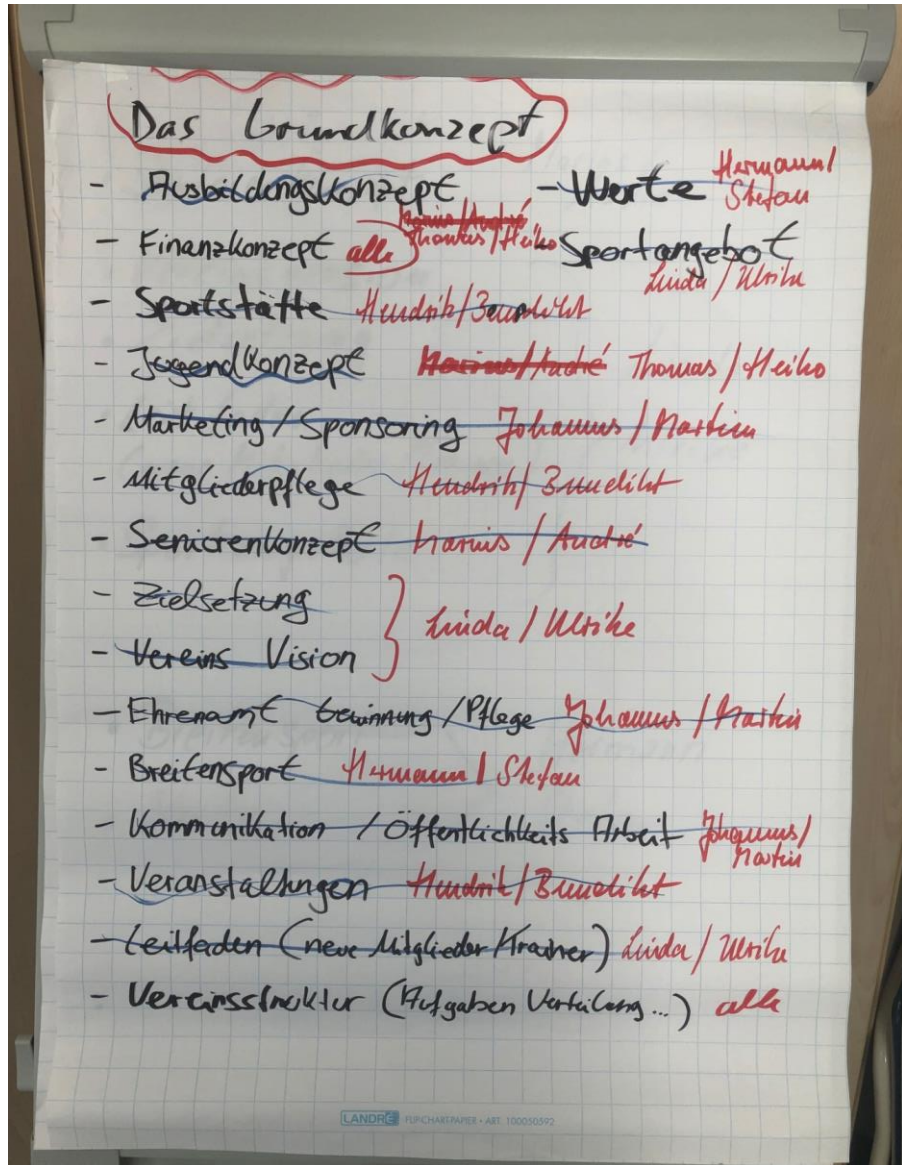 Das Grundkonzept
- Ausbildungskonzept - Werte Hermann/
Stefan
Marius/André
- Finanzkonzept alle Thomas/Heiko Sportangebot
Linda / Ulrike
- Sportstätte Hendrik/Benedikt
- Jugendkonzept Marius/André Thomas / Heiko
- Marketing / Sponsoring Johannes / Martin
- Mitgliederpflege Hendrik/ Benedikt
- Seniorenkonzept Marius / André
- Zielsetzung
Linda / Ulrike
- Vereins Vision
- Ehrenamt Gewinnung / Pflege Johannes / Martin
- Breitensport Hermann / Stefan
- Kommunikation / Öffentlichkeits Arbeit Johannes/
Martin
- Veranstaltungen Hendrik/Benedikt
- Leitfaden (neue Mitglieder/Trainer) Linda / Ulrike
- Vereinsstruktur (Aufgaben Verteilung...) alle
LANDRÉ FLIPCHARTPAPIER • ART. 100050592